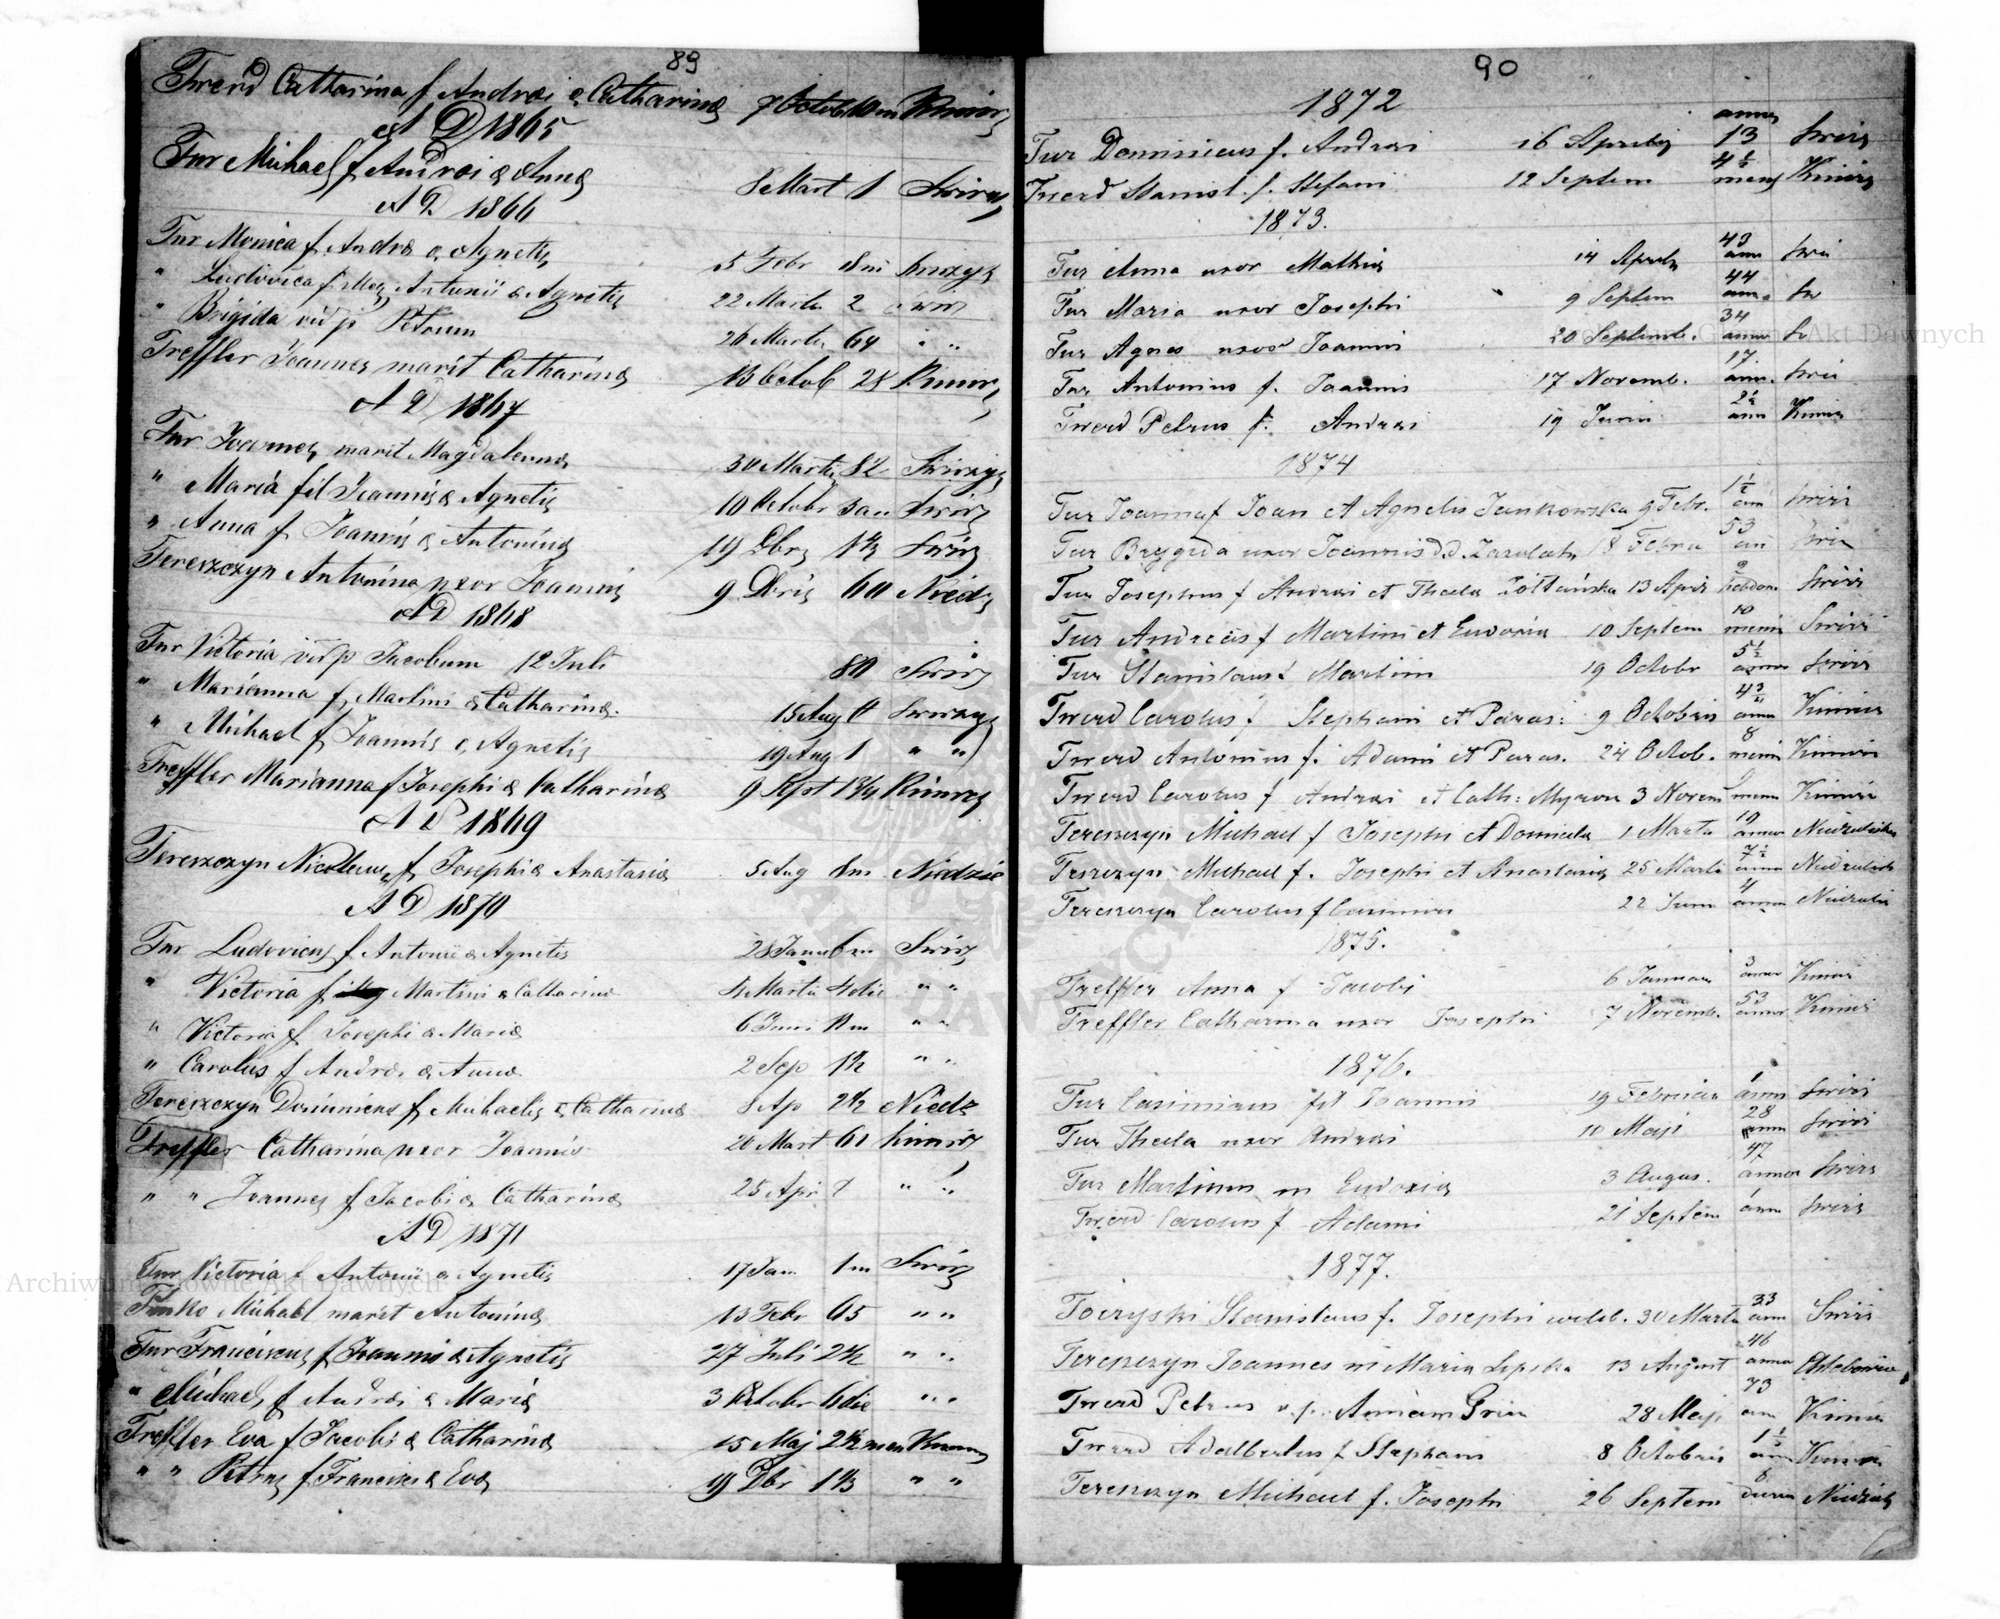 89
Twerd Catharina f Andreæ & Catharinæ 7 Octob 10 m Kimirz
A D 1865
Tur Michael f Andreæ & Annæ 8 Mart 1 Swirz
A D. 1866
Tur Monica f Andreæ & Agnetis 5 Febr 8 m
" Ludovica f Antonii & Agnetis 22 Martii 2
" Brigida vid p Petrum 26 Martii 64 " "
Treffler Joannes marit Catharinæ 13 Octob 28 Kimirz
A D 1867
Tur Joannes marit Magdalenæ 30 Martii 82
" Maria fil Joannis & Agnetis 10 Octobr 3 an Swirz
" Anna f Joannis & Antoninæ 19 Dbr 1½ Swirz
Tereszczyn Antonina uxor Joannis 9 Dbris 60 Niedz
A D 1868
Tur Victoria vid p Jacobum 12 Juli 80 Swirz
" Marianna f Martini & Catharinæ 15 Aug
" Michael f Joannis & Agnetis 19 Aug 1 " "
Treffler Marianna f Josephi & Catharinæ 9 Sept Kimirz
A D 1869
Tereszczyn Nicolaus f Josephi & Anastasiæ 5 Aug 8 m Niedzie
A D 1870
Tur Ludovicus f Antonii & Agnetis 28 Janua 6 m Swirz
" Victoria f Martini & Catharinæ 4 Martii 4 die " "
" Victoria f Josephi & Mariæ 6 Juni 11 m " "
" Carolus f Andreæ & Annæ 2 Sep 1½ " "
Tereszczyn Dominicus f Michaelis & Catharinæ 8 Ap 2½ Niedz
Treffler Catharina uxor Joannis 20 Mart 61 Kimirz
" " Joannes f Jacobi & Catharinæ 25 Apr 7 " "
A D 1871
Tur Victoria f Antonii & Agnetis 17 Jan 1 m Swirz
Michael marit Antoninæ 13 Febr 65 " "
Tur Franciscus f Joannis & Agnetis 27 Juli 2½ " "
" Michael f Andreæ & Mariæ 3 Octobr 6 die " "
Treffler Eva f Jacobi & Catharinæ 15 Maj 2½
" " Petrus f Francisci & Evæ 19 Dbr 1½ " "
90
1872
Tur Dominicus f. Andreæ 16 Aprilis 13 annos Swirz
Twerd Stanisl. f. Stefani 12 Septem 4½ mens Kimirz
1873.
Tur Anna uxor Mathiæ 14 Aprilis 43 ann Swir
Tur Maria uxor Josephi 9 Septem 44 ann. Sw
Tur Agnes uxor Joannis 20 Septemb. 34 annor Sw
Tur Antonius f. Joannis 17 Novemb. 17 ann. Swir
Twerd Petrus f. Andreæ 19 Junii 2½ ann Kimir
1874
Tur Joanna f Joan et Agnetis Jankowska 9 Febr. 1½ an Swirz
Tur Brygida uxor Joannis 18 Febru 53 an Swir
Tur Josephus f Andreæ et Thecla Żółtańska 13 April 2 hebdom Swirz
Tur Andreas f Martini et Eudoxia 10 Septem 10 mens Swirz
Tur Stanislaus f Martini 19 Octobr 5½ annor Swirz
Twerd Carolus f Stephani et Paras: 9 Octobris 4 ann Kimirz
Twerd Antonius f. Adami et Paras. 24 Octob. 8 mens Kimirz
Twerd Carolus f Andreæ et Cath: Myrow 3 Novem 9 mens Kimirz
Tereszczyn Michael f Josephi et Domicela 1 Martii 10 annor
Tereszczyn Michael f. Josephi et Anastasiæ 25 Martii 7½ annor
Tereszczyn Carolus f Casimiri 22 Juni 4 annor
1875.
Treffler Anna f Jacobi 6 Januar 3 annor Kimirz
Treffler Catharina uxor Josephi 7 Novemb. 53 annor Kimirz
1876.
Tur Casimirus fil Joannis 19 Februar 1 ann Swirz
Tur Thecla uxor Andreæ 10 Maji 28 ann Swirz
Tur Martinus m Eudoxiæ 3 Augus. 47 annor Swirz
Twerd Carolus f Adami 21 Septem 1 ann Swirz
1877.
Toczyski Stanislaus f. Josephi 30 Martii 33 ann Swirz
Tereszczyn Joannes m Maria Lipska 13 August 46 annor
Twerd Petrus v. p. Annam 28 Maji 73 an Kimir
Twerd Adalbertus f Stephani 8 Octobris 1½ an
Tereszczyn Michael f. Josephi 26 Septem 8
Archiwum Główne Akt Dawnych
Archiwum Główne Akt Dawnych